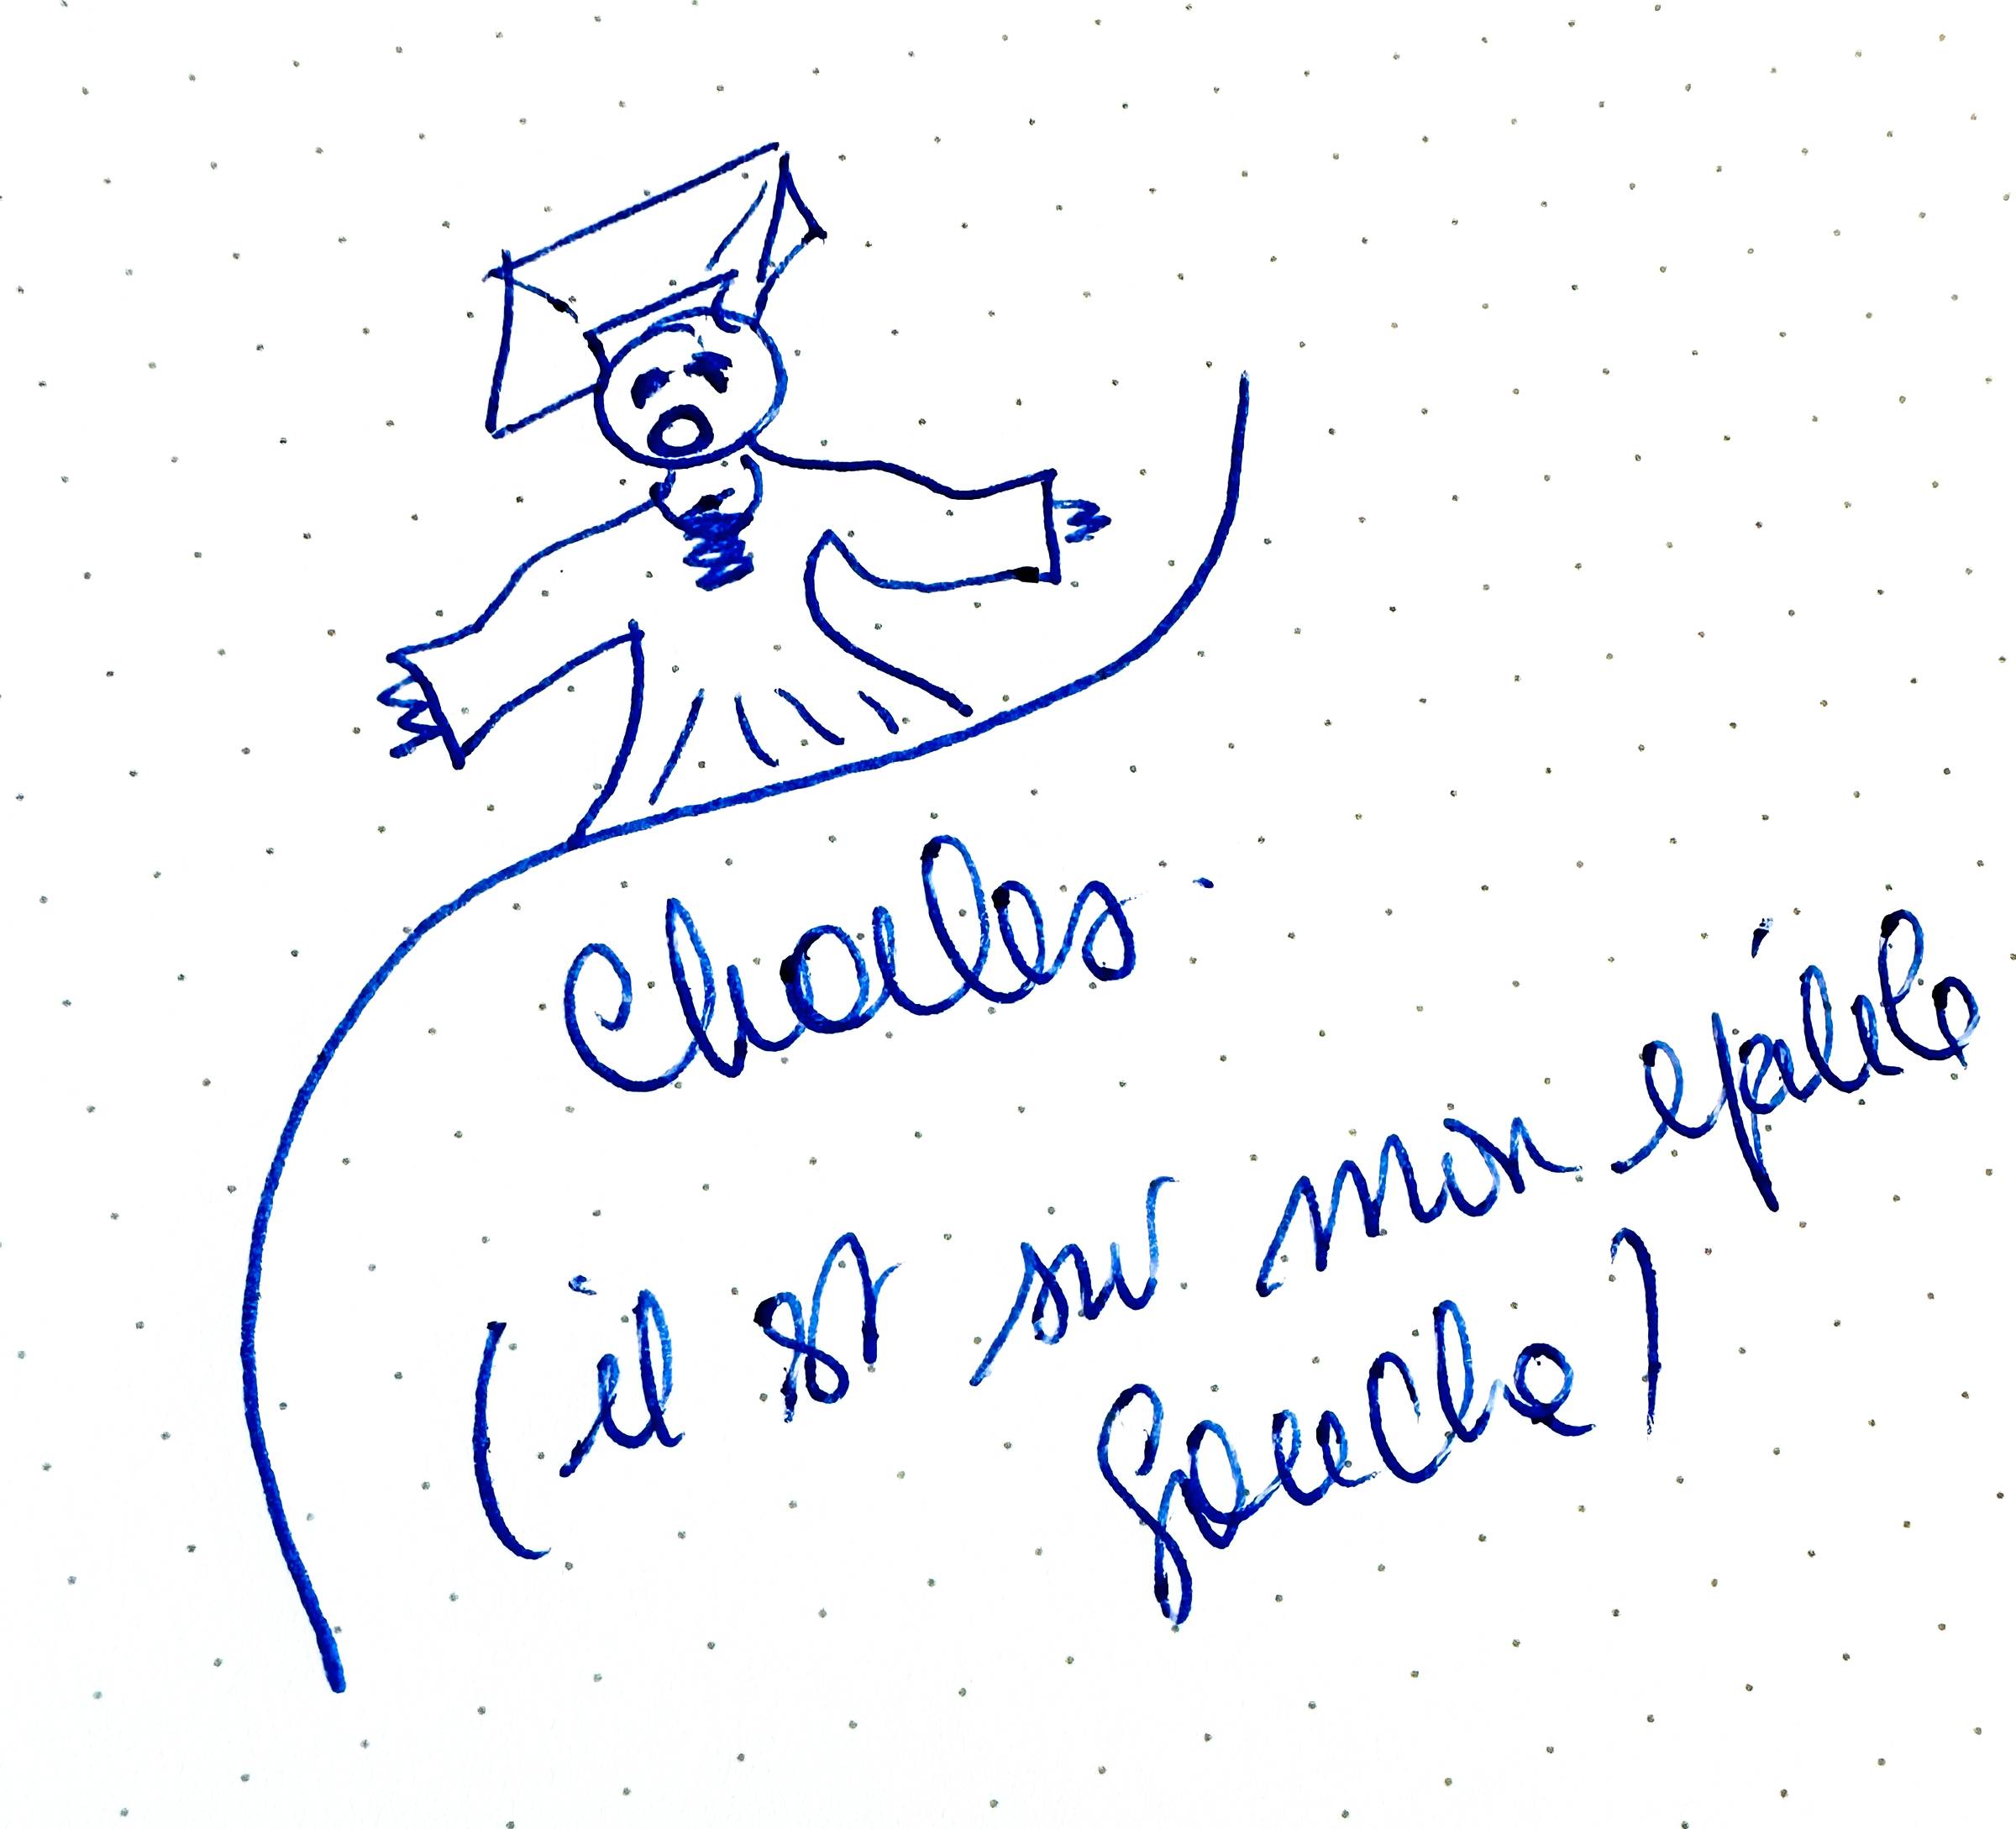 Charles
(il est sur mon épaule
gauche)